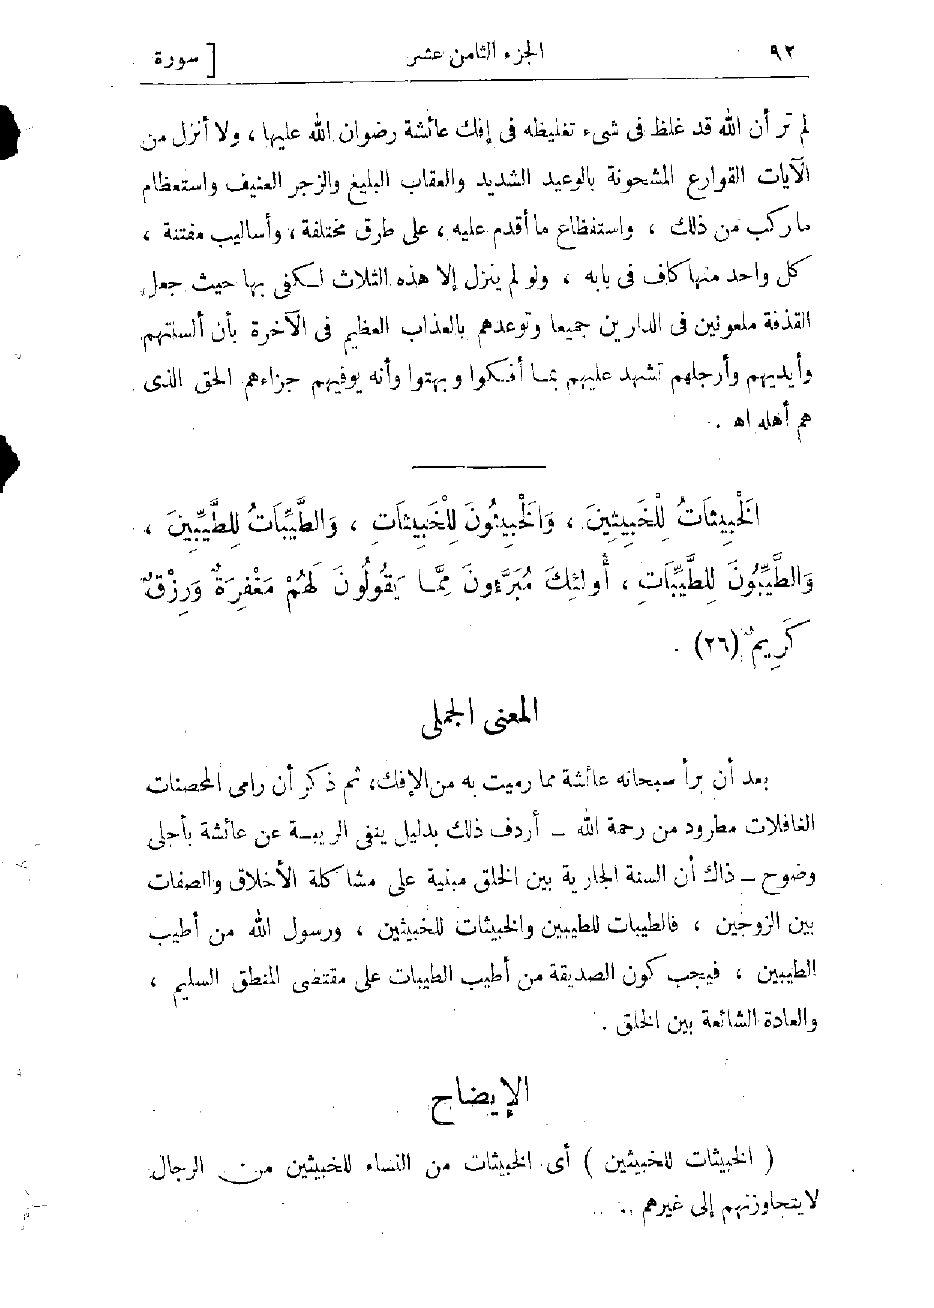 ٩٢ الجزء الثامن عشر [ سورة
لم تر أن الله قد غلظ فى شىء تغليظه فى إفك عائشة رضوان الله عليها ، ولا أنزل من
الآيات القوارع المشحونة بالوعيد الشديد والعقاب البليغ والزجر العنيف واستعظام
ماركب من ذلك ، واستفظاع ما أقدم عليه ، على طرق مختلفة ، وأساليب مفتنة ،
كل واحد منها كاف فى بابه ، ولو لم ينزل إلا هذه الثلاث لكفى بها حيث جعل
القذفة ملعونين فى الدارين جميعا وتوعدهم بالعذاب العظيم فى الآخرة بأن ألسنتهم
وأيديهم وأرجلهم تشهد عليهم بما أفكوا وبهتوا وأنه يوفيهم جزاءهم الحق الذى
هم أهله اه .
الْخَبِيثَاتُ لِلْخَبِيثِينَ ، وَالْخَبِيثُونَ لِلْخَبِيثَاتِ ، وَالطَّيِّبَاتُ لِلطَّيِّبِينَ ،
وَالطَّيِّبُونَ لِلطَّيِّبَاتِ ، أُولئِكَ مُبَرَّءُونَ مِمَّا يَقُولُونَ لَهُمْ مَغْفِرَةٌ وَرِزْقٌ
كَرِيمٌ (٢٦) .
المعنى الجملى
بعد أن برأ سبحانه عائشة مما رميت به من الإفك، ثم ذكر أن رامى المحصنات
الغافلات مطرود من رحمة الله – أردف ذلك بدليل ينفى الريبة عن عائشة بأجلى
وضوح – ذاك أن السنة الجارية بين الخلق مبنية على مشاكلة الأخلاق والصفات
بين الزوجين ، فالطيبات للطيبين والخبيثات للخبيثين ، ورسول الله من أطيب
الطيبين ، فيجب كون الصديقة من أطيب الطيبات على مقتضى المنطق السليم ،
والعادة الشائعة بين الخلق .
الإيضاح
( الخبيثات للخبيثين ) أى الخبيثات من النساء للخبيثين من الرجال
لايتجاوزنهم إلى غيرهم ..